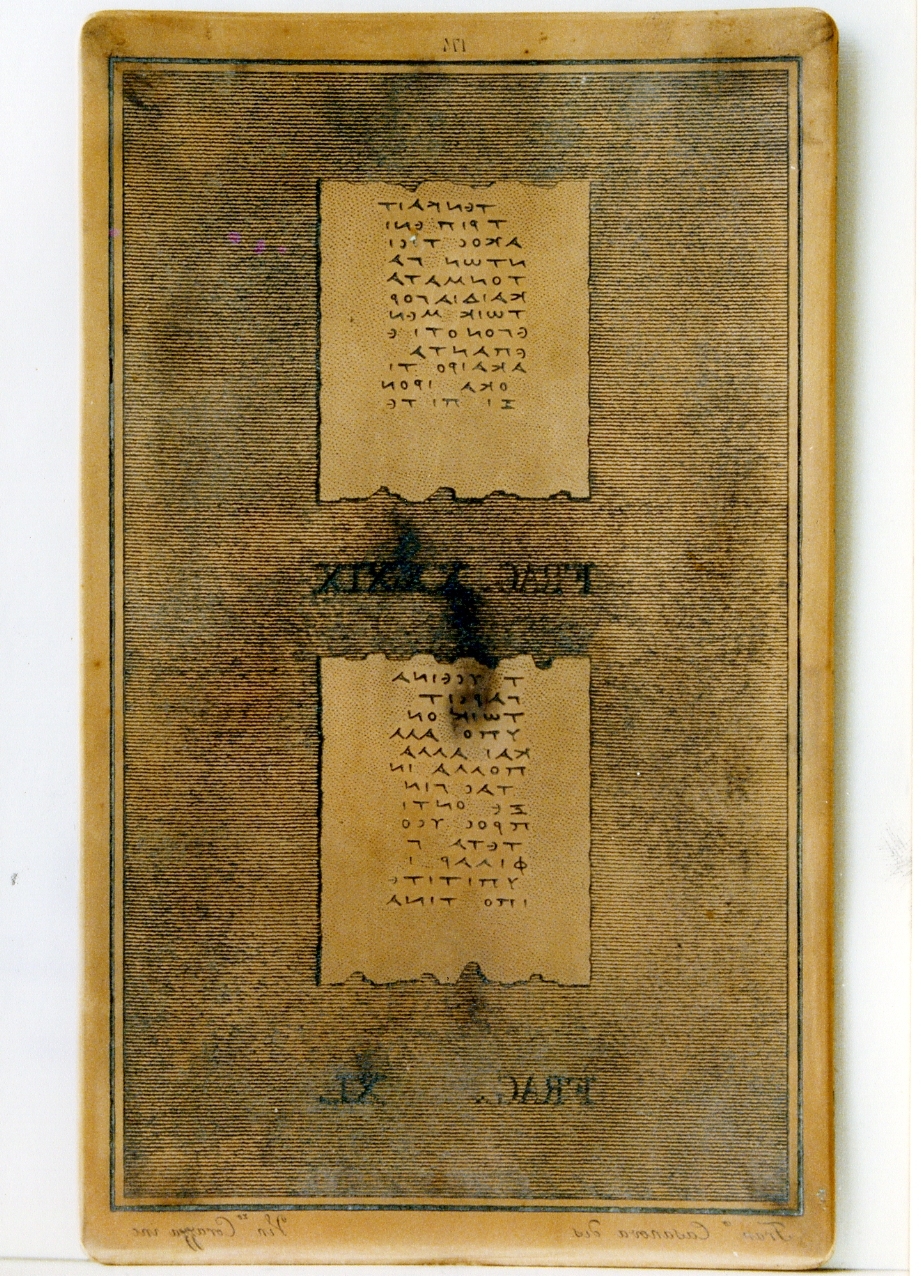 174
ΤΕΝΚΑΙΤ
Τ ΡΙΠ ΕΝΙ
ΑΚΟϹ Τ ϹΙ
ΝΤΩΝ ΓΑ
ΤΟΝΜΑΤΑ
ΚΑΙΔΙΑΓΟΡ
ΤΩΙΚ ΜΕΝ
ΕΓΟΝΟΤΙ Ε
ΕΠΑΝΤΑ
ΑΚΑΙΡΟ ΤΙ
ΟΚΑ ΙΡΟΝ
Ξ Ι ΠΙ ΤΕ
FRAG. XXXIX
Τ ΥϹΕΙΝΑ
ΓΑΡϹΙΤ
ΤΩΙΚ ΟΝ
ΥΠΟ ΑΛΛ
ΚΑΙ ΑΛΛΑ
ΠΟΛΛΑ ΙΝ
ΤΑϹ ΓΙΝ
ΞΕ ΟΝΤΙ
ΠΡΟϹ ΥϹΟ
ΤΕΤΑ Γ
ΦΙΛΑΡ Ι
ΥΠΙΤΙΤΕ
ΙΠΟ ΤΙΝΑ
FRAG. XL.
Casanova dis Vin.zo Corazza inc